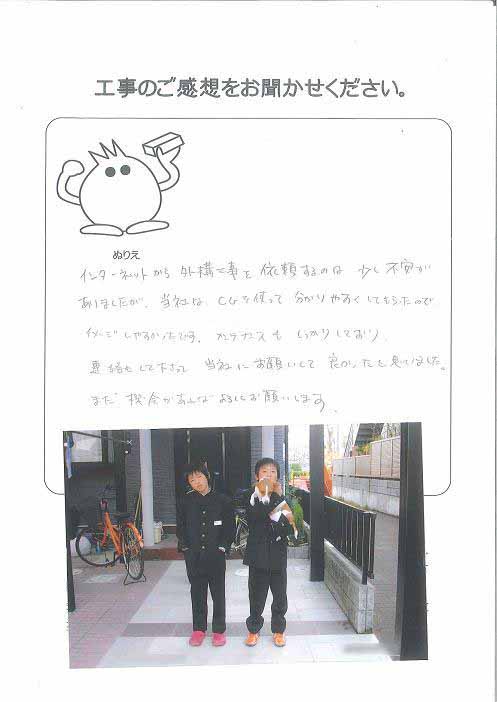 工事のご感想をお聞かせください。
ぬりえ
インターネットから外構工事を依頼するのは少し不安が
ありましたが、当社は、CGを使って分かりやすくしてもらったので
イメージしやすかったです。メンテナンスもしっかりしており
連絡もして下さって当社にお願いして良かったと思いました。
また機会があればよろしくお願いします。